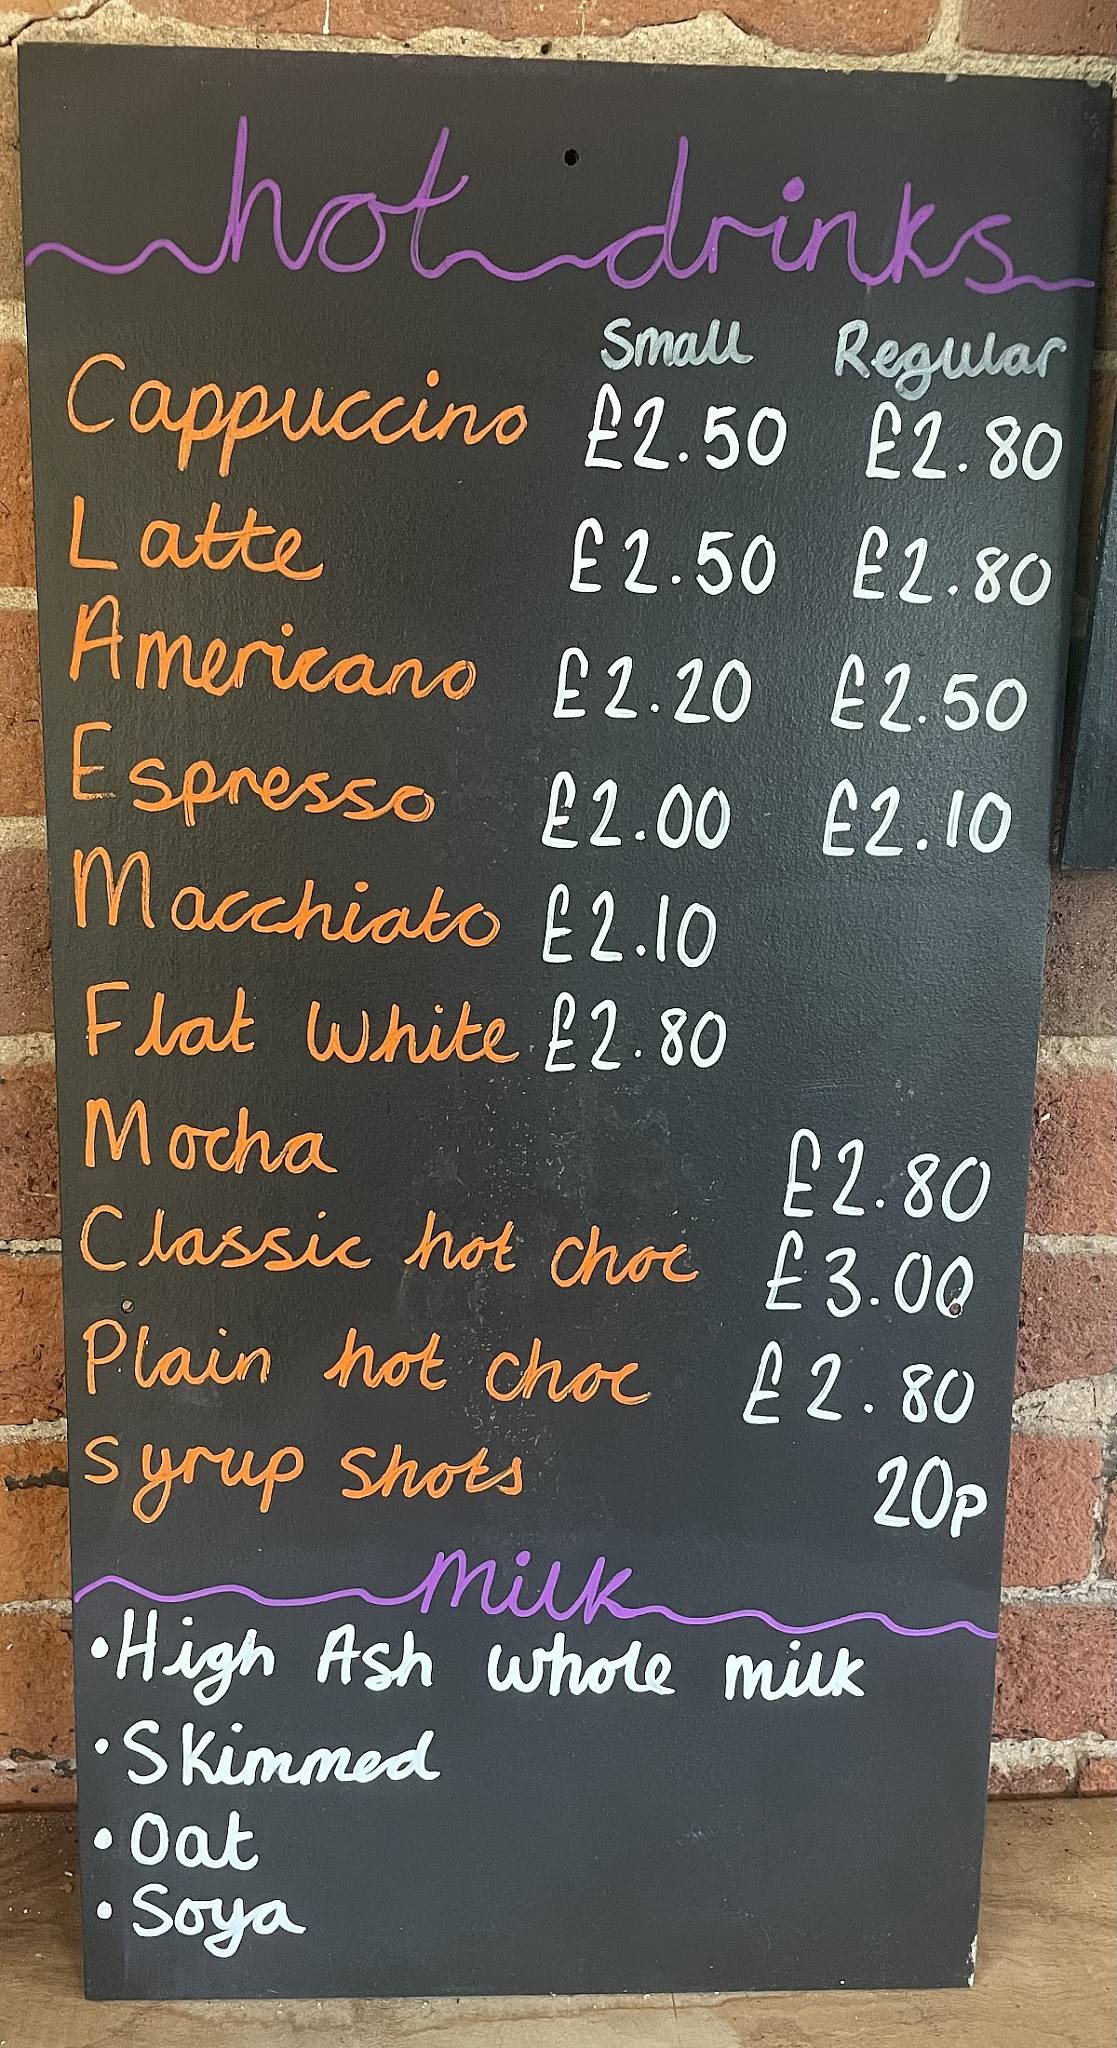 hot drinks
Small Regular
Cappuccino £2.50 £2.80
Latte £2.50 £2.80
Americano £2.20 £2.50
Espresso £2.00 £2.10
Macchiato £2.10
Flat White £2.80
Mocha £2.80
Classic hot choc £3.00
Plain hot choc £2.80
Syrup Shots 20p
milk
• High Ash whole milk
• Skimmed
• Oat
• Soya